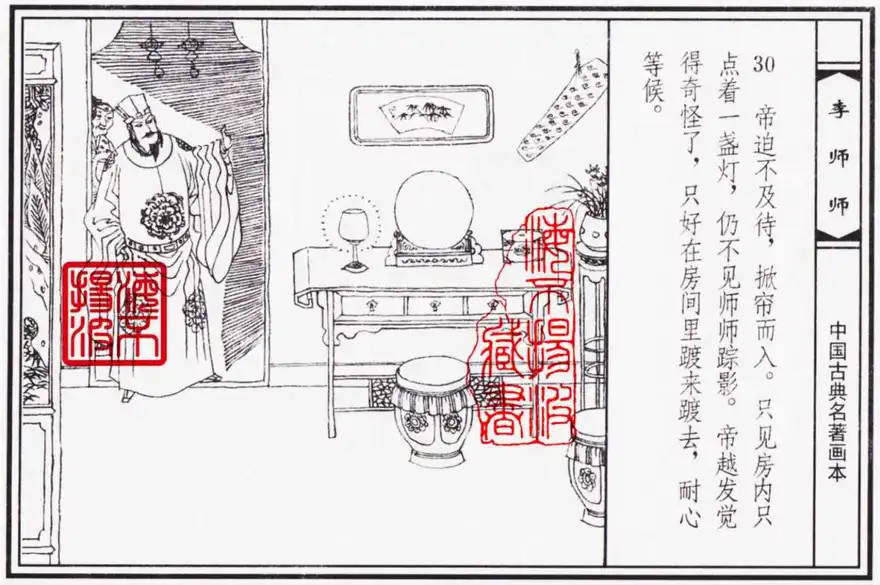 李师师
中国古典名著画本
30 帝迫不及待，掀帘而入。只见房内只
点着一盏灯，仍不见师师踪影。帝越发觉
得奇怪了，只好在房间里踱来踱去，耐心
等候。
海不揚波
藏書
海不
揚波